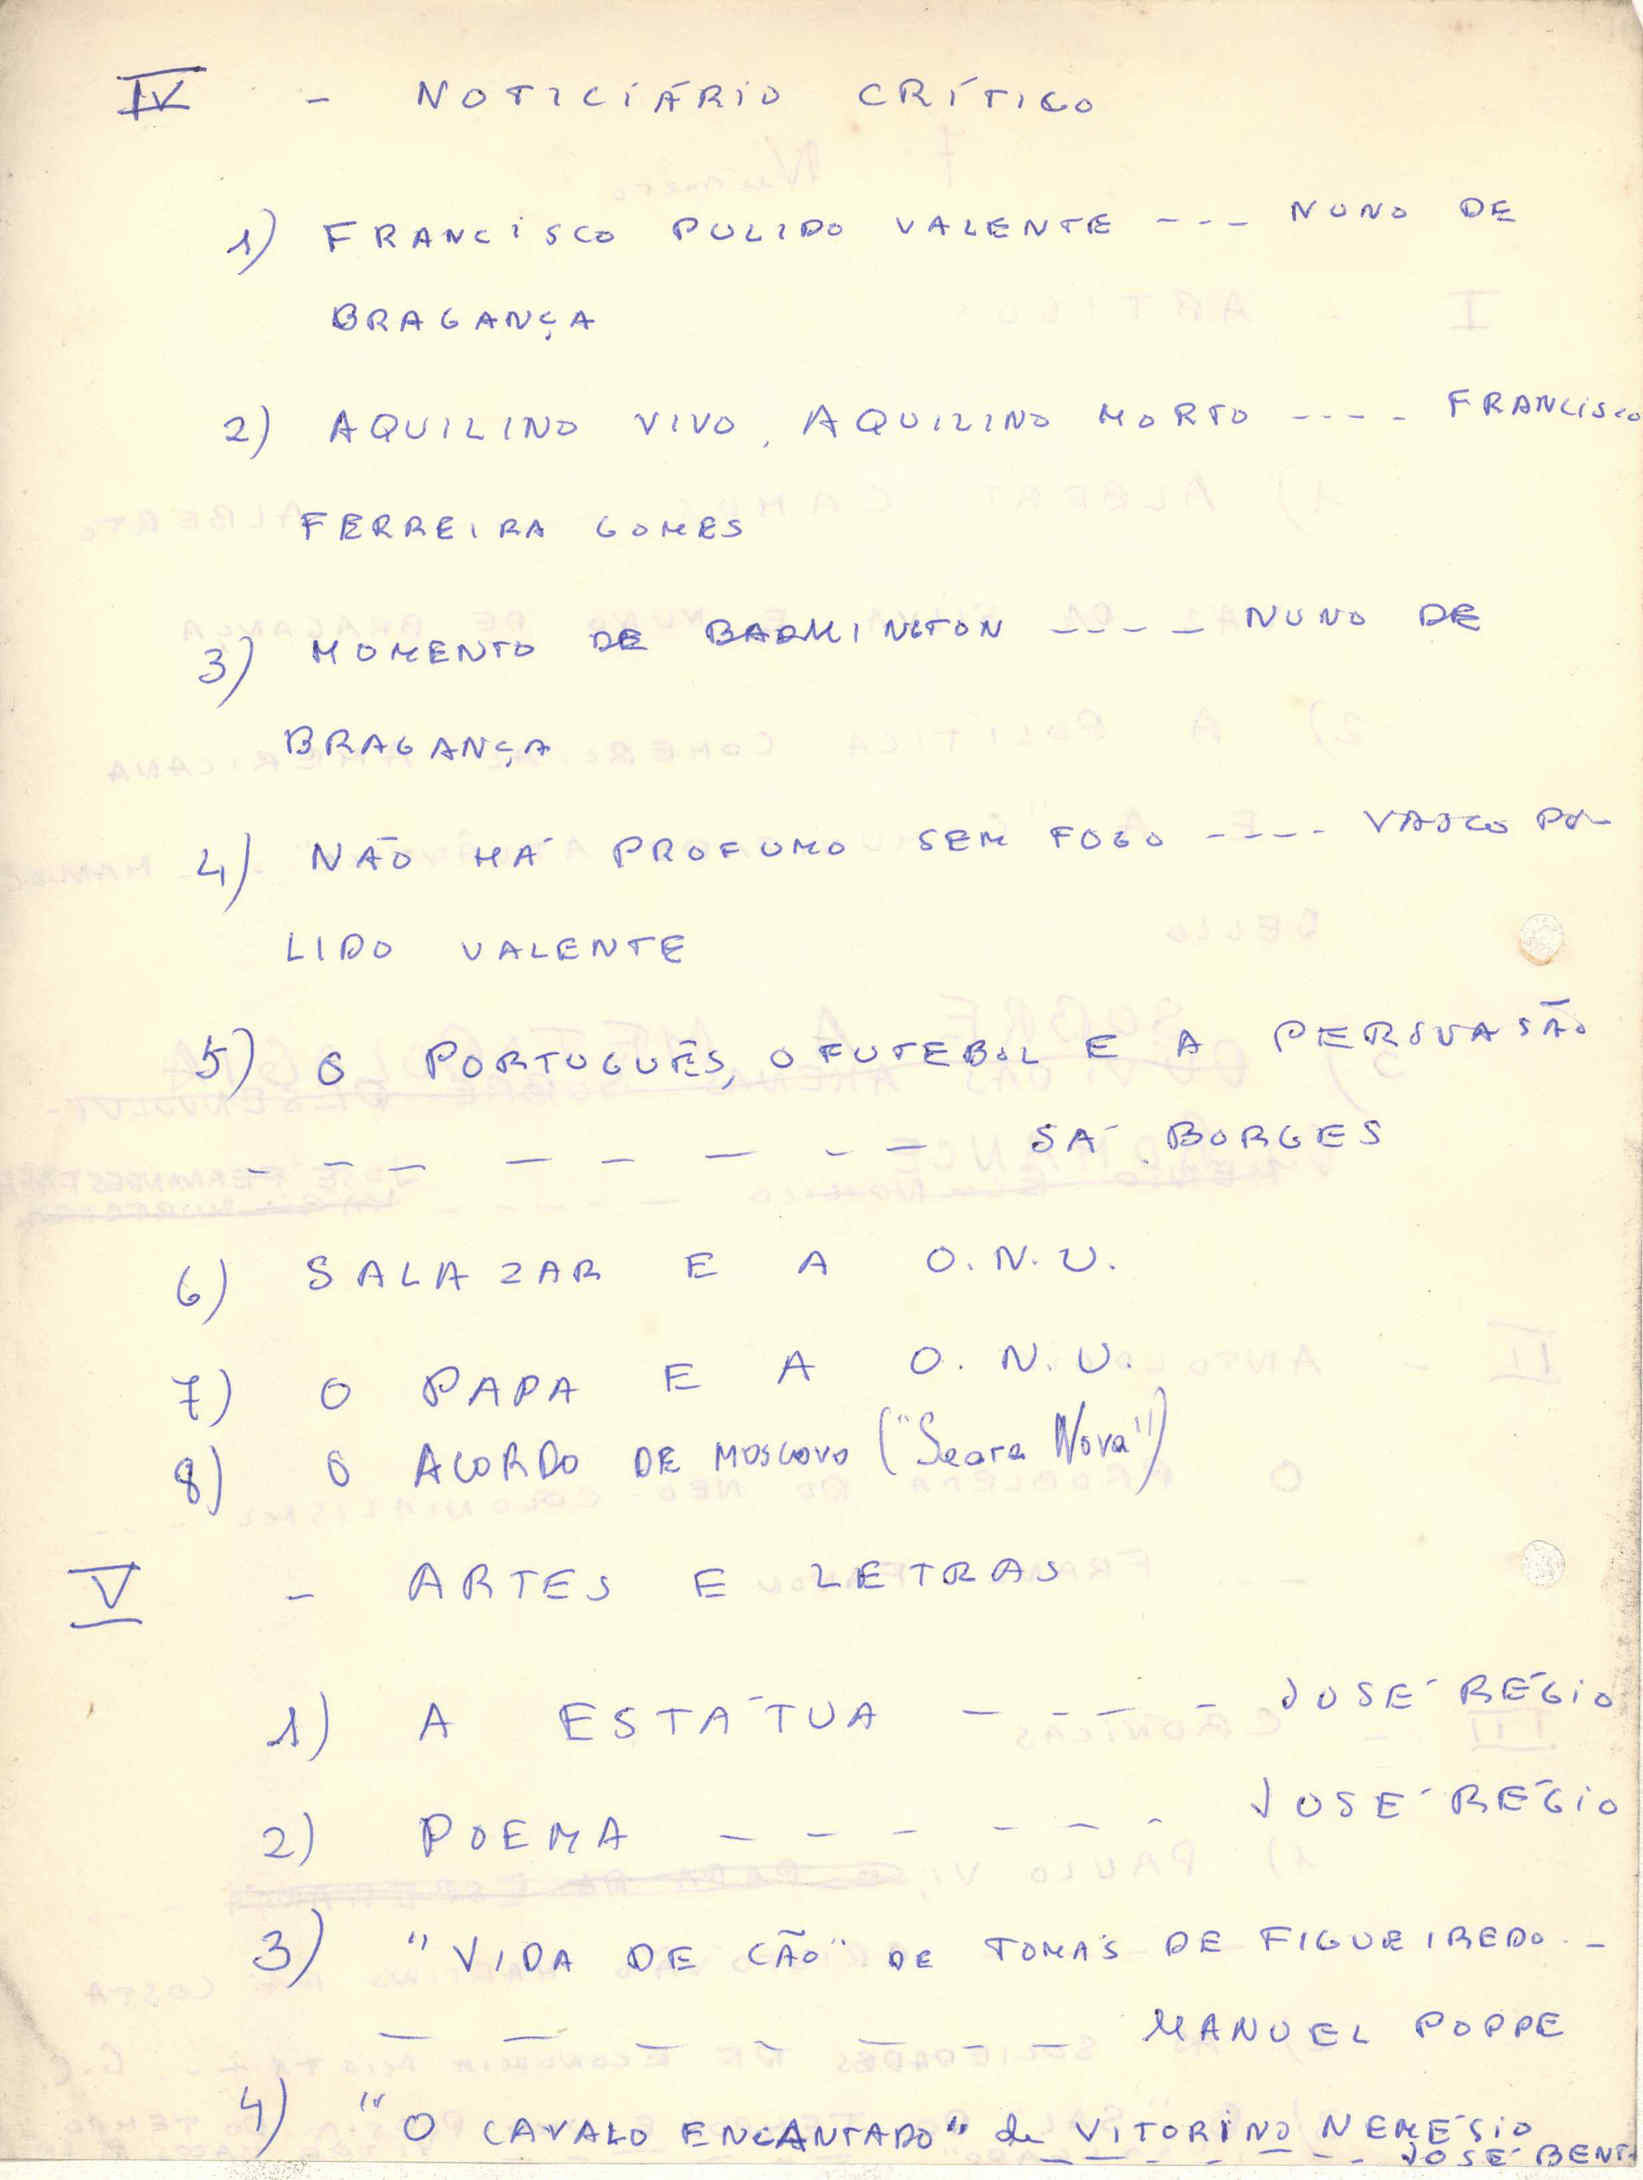 IV - NOTICIÁRIO CRÍTICO
1) FRANCISCO PULIDO VALENTE --- NUNO DE
BRAGANÇA
2) AQUILINO VIVO, AQUILINO MORTO ---- FRANCISCO
FERREIRA GOMES
3) MOMENTO DE BADMINGTON ---- NUNO DE
BRAGANÇA
4) NÃO HÁ PROFUMO SEM FOGO ---- VASCO PU-
LIDO VALENTE
5) O PORTUGUÊS, O FUTEBOL E A PERSUASÃO
--------- SÁ BORGES
6) SALAZAR E A O.N.U.
7) O PAPA E A O.N.U.
8) O ACORDO DE MOSCOVO ("Seara Nova")
V - ARTES E LETRAS
1) A ESTÁTUA ---- JOSÉ RÉGIO
2) POEMA ------ JOSÉ RÉGIO
3) "VIDA DE CÃO" DE TOMÁS DE FIGUEIREDO --
------- MANUEL POPPE
4) "O CAVALO ENCANTADO" de VITORINO NEMÉSIO
------ JOSÉ BENTO